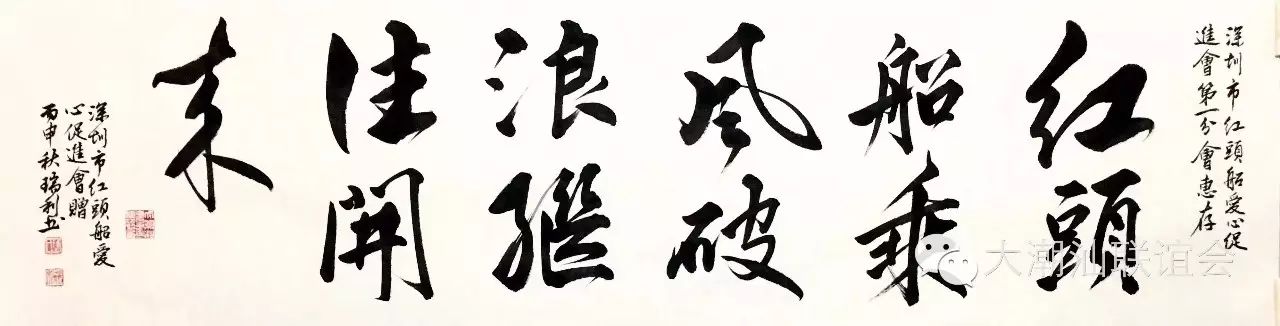 深圳市红頭船爱心促
進會第一分會惠存
红頭
船乘
風破
浪繼
往開
来
深圳市红頭船爱
心促進會贈
丙申秋瑞利书
大潮汕联谊会